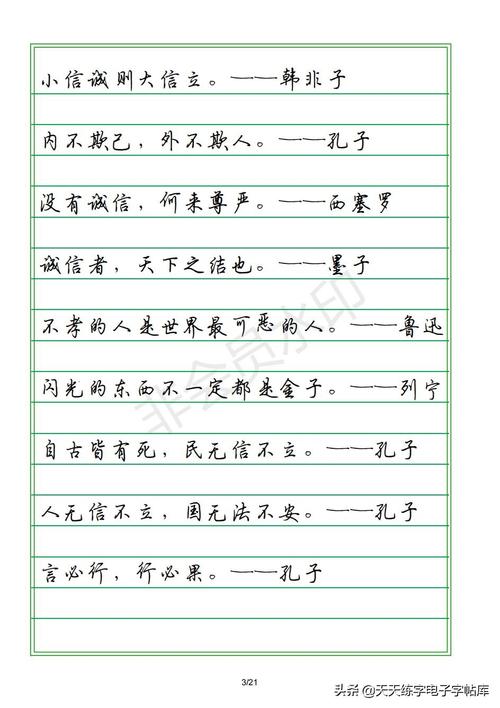 小信诚则大信立。——韩非子
内不欺己，外不欺人。——孔子
没有诚信，何来尊严。——西塞罗
诚信者，天下之结也。——墨子
不孝的人是世界最可恶的人。——鲁迅
闪光的东西不一定都是金子。——列宁
自古皆有死，民无信不立。——孔子
人无信不立，国无法不安。——孔子
言必行，行必果。——孔子
非会员水印
3/21
头条@天天练字电子字帖库